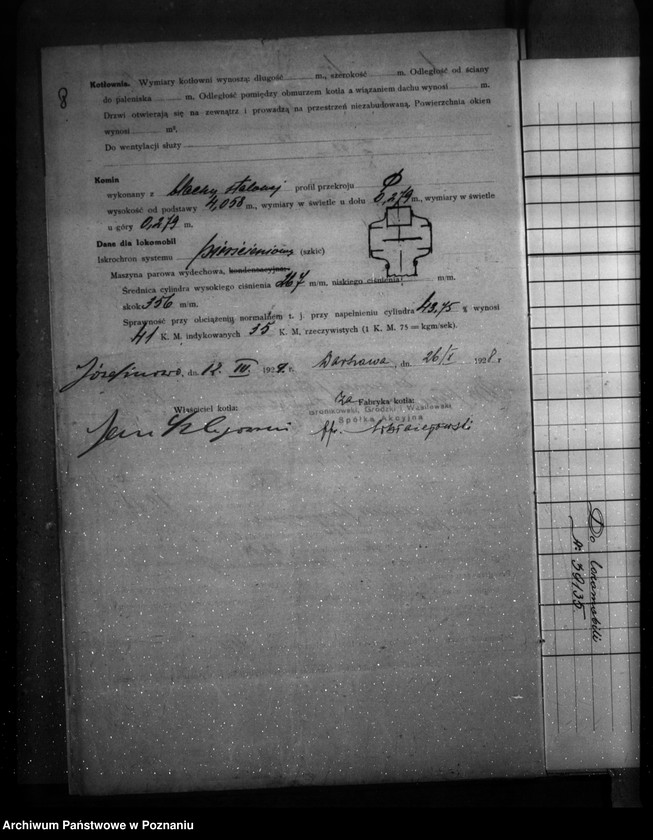 8
Kotłownia. Wymiary kotłowni wynoszą: długość m., szerokość m. Odległość od ściany
do paleniska m. Odległość pomiędzy obmurzem kotła a wiązaniem dachu wynosi m.
Drzwi otwierają się na zewnątrz i prowadzą na przestrzeń niezabudowaną. Powierzchnia okien
wynosi m².
Do wentylacji służy
Komin
wykonany z blachy stalowej profil przekroju
wysokość od podstawy 4,058 m., wymiary w świetle u dołu 0,279 m., wymiary w świetle
u góry 0,279 m.
Dane dla lokomobil
Iskrochron systemu pierścieniowy (szkic)
Maszyna parowa wydechowa, kondensacyjna,
Średnica cylindra wysokiego ciśnienia 267 m/m, niskiego ciśnienia m/m.
skok 356 m/m.
Sprawność przy obciążeniu normalnem t. j. przy napełnieniu cylindra 43,75 % wynosi
41 K. M. indykowanych 35 K. M. rzeczywistych (1 K. M. 75 = kgm/sek).
Józefinowo, dn. 12. IV. 1928. r.
Warszawa, dn. 26/I 1928 r
Właściciel kotła:
za Fabryka kotła:
Spółka Akcyjna
Jan
Do lokomobili
№ 39/35
Archiwum Państwowe w Poznaniu